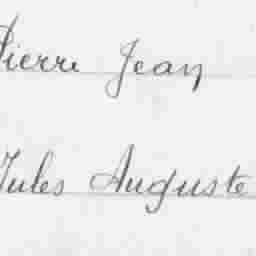 Pierre Jean
Jules Auguste